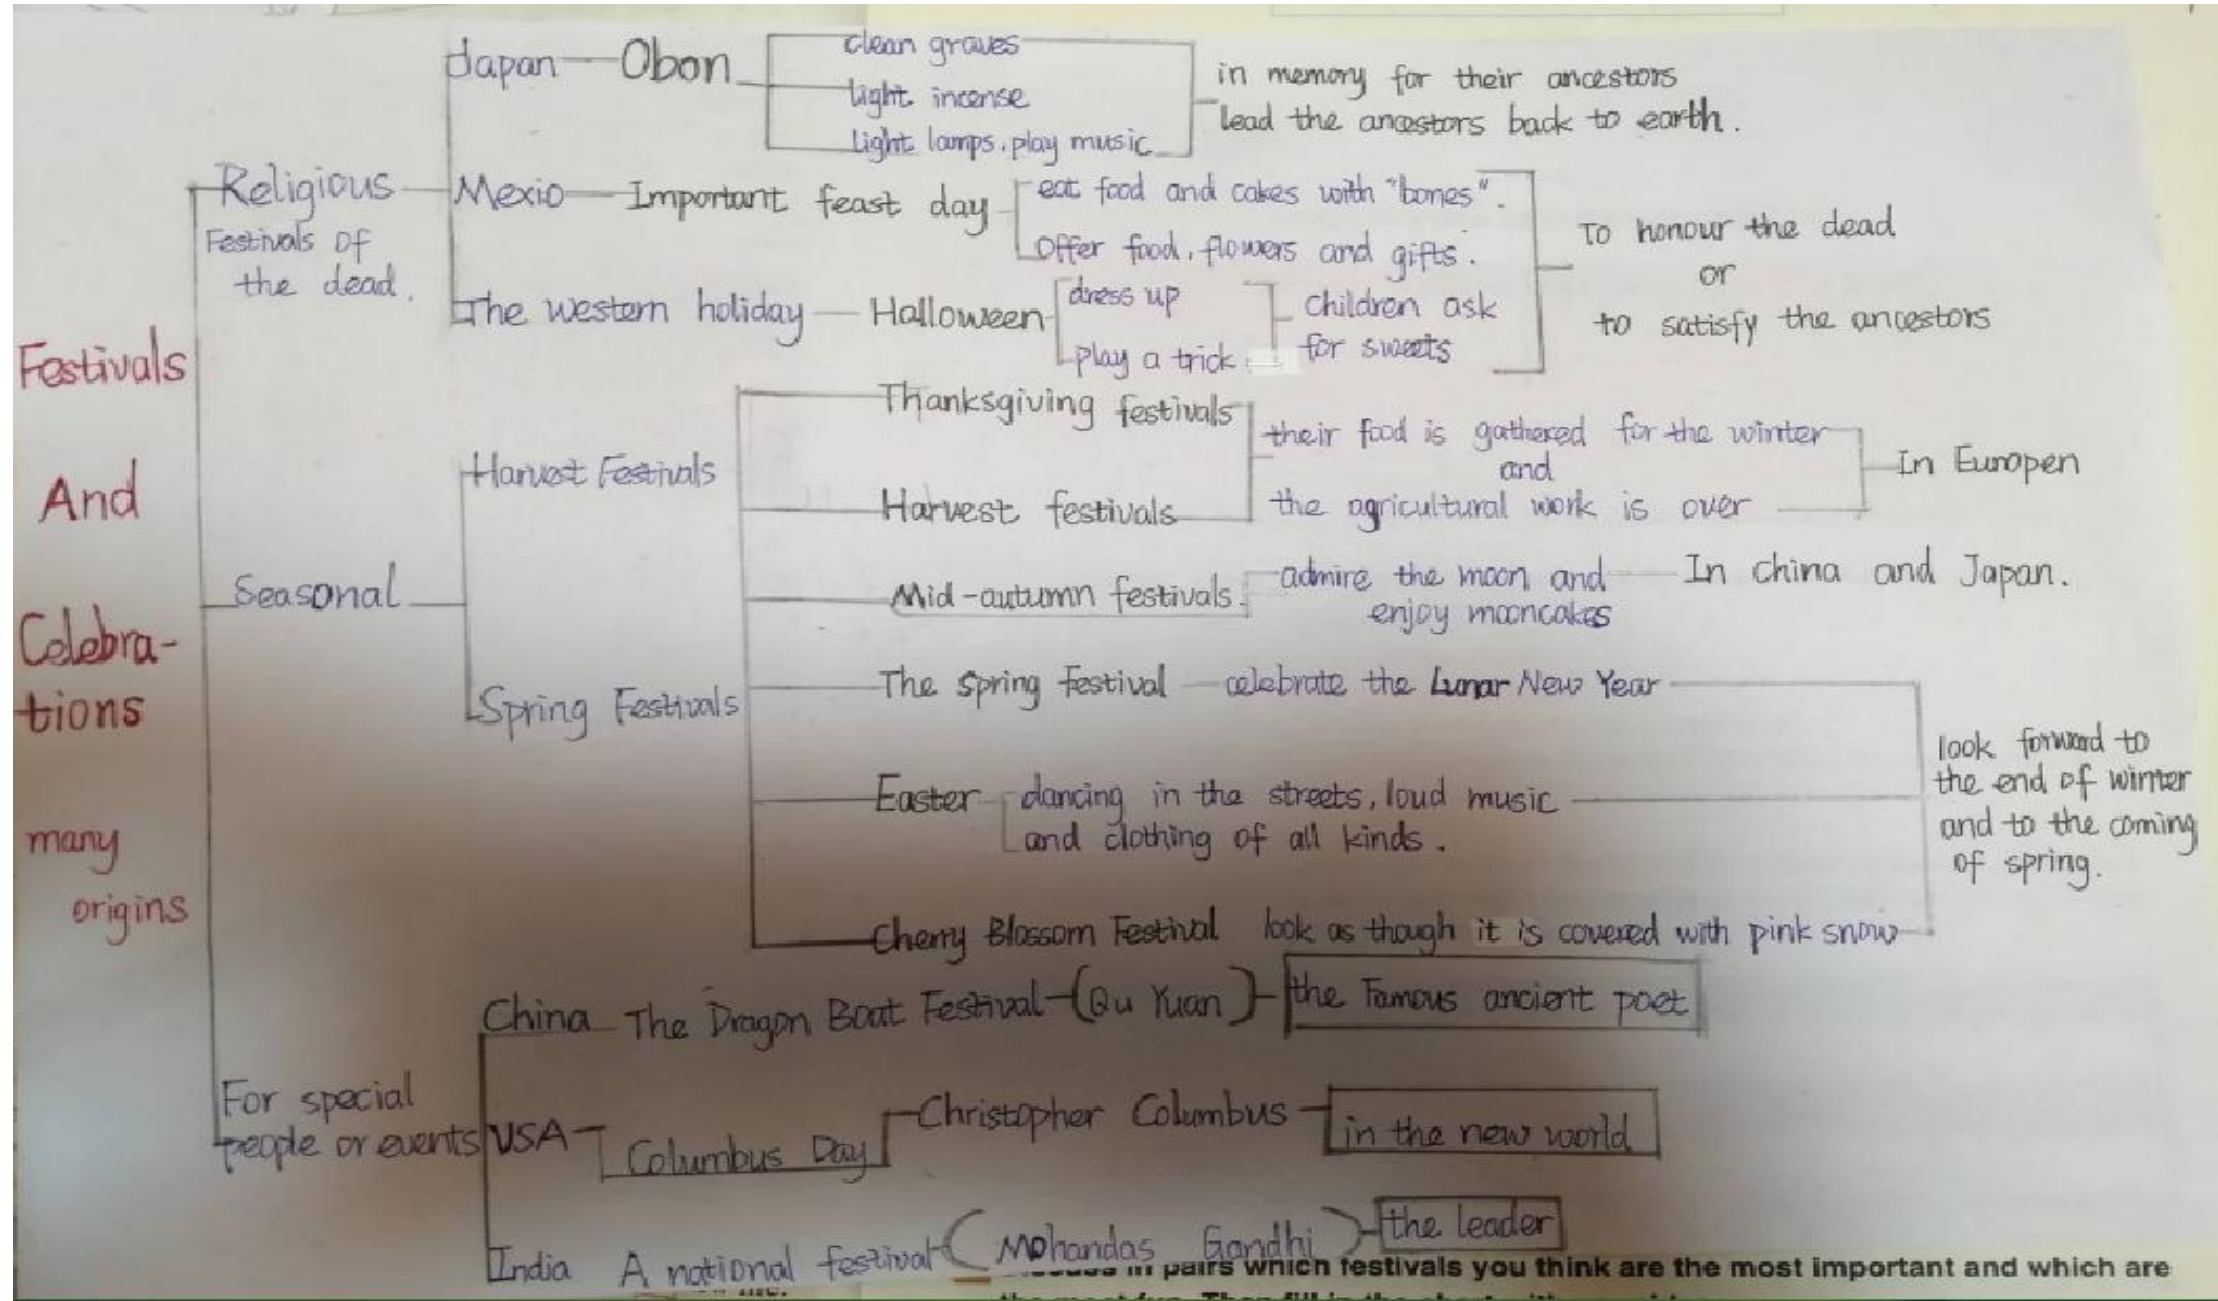 Festivals
And
Celebra-
tions
many
origins
Religious
Festivals of
the dead.
Japan Obon
clean graves
light incense
light lamps. play music
in memory for their ancestors
lead the ancestors back to earth.
Mexio Important feast day
eat food and cakes with "bones".
offer food, flowers and gifts.
The western holiday Halloween
dress up
play a trick
children ask
for sweets
To honour the dead
or
to satisfy the ancestors
Seasonal
Harvest Festivals
Thanksgiving festivals
Harvest festivals
their food is gathered for the winter
and
the agricultural work is over
In Europen
Mid-autumn festivals.
admire the moon and
enjoy mooncakes
In china and Japan.
Spring Festivals
The Spring Festival celebrate the Lunar New Year
Easter
dancing in the streets, loud music
and clothing of all kinds.
Cherry Blossom Festival look as though it is covered with pink snow
look forward to
the end of winter
and to the coming
of spring.
For special
people or events
China The Dragon Boat Festival (Qu Yuan) the Famous ancient poet
USA Columbus Day Christopher Columbus in the new world
India A national festival (Mohandas Gandhi) the leader
in pairs which festivals you think are the most important and which are